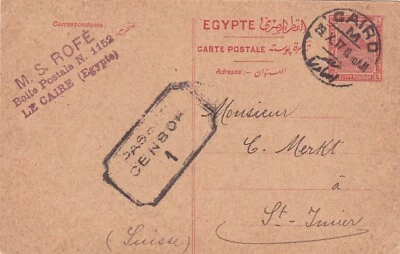 Correspondance.
M. S. ROFÉ
Boîte Postale N. 1152
LE CAIRE (Egypte)
EGYPTE القطر المصرى
CARTE POSTALE تذكرة بوستة
Adresse: العنوان:
CAIRO
M
PASSED
CENSOR
1
Monsieur
C. Merkt
à
St-Imier
(Suisse)